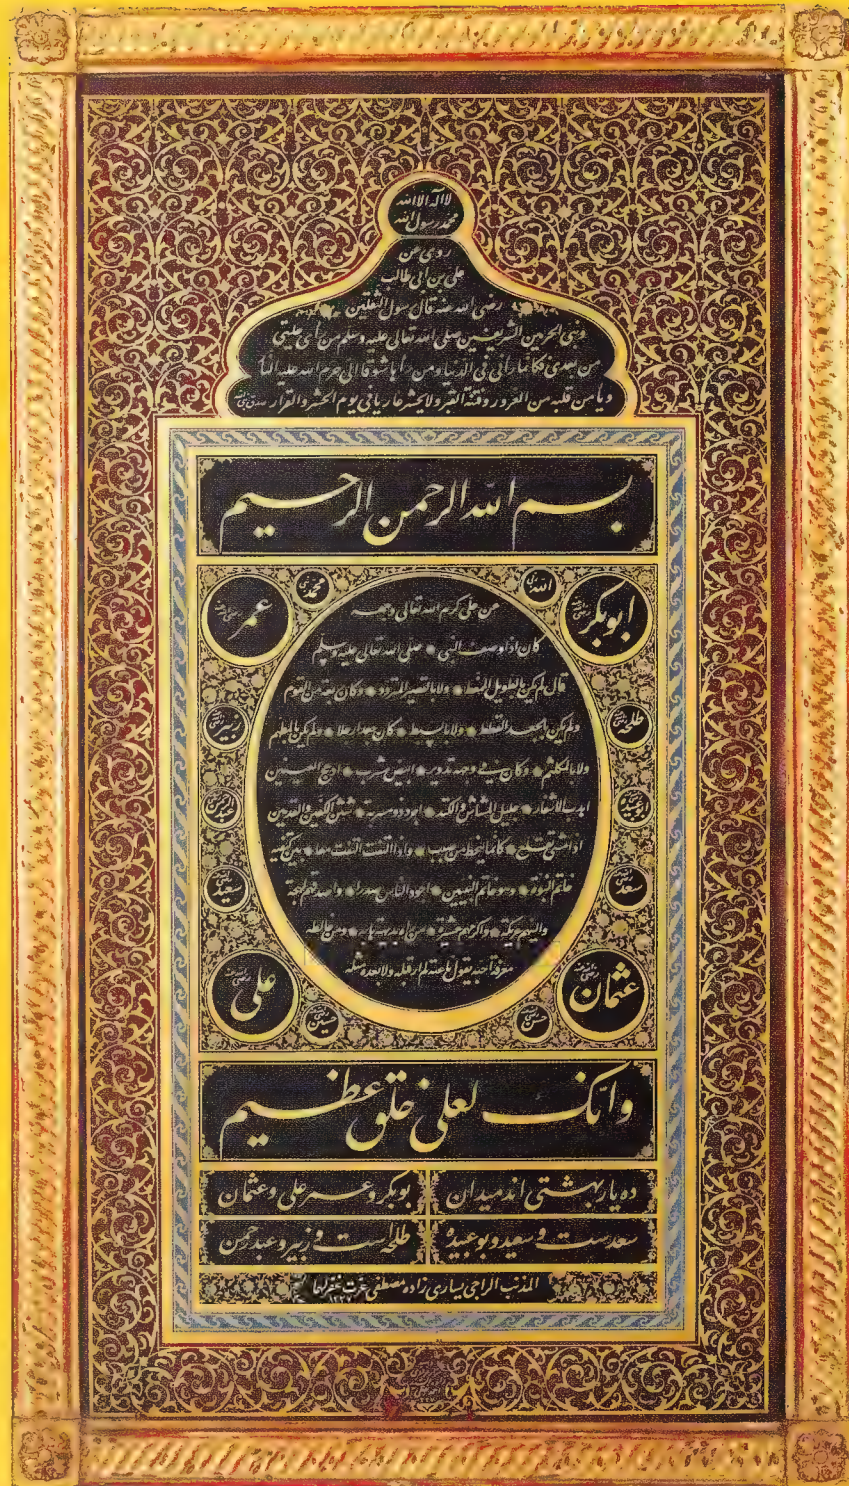 لا اله الا الله
محمد رسول الله
روى عن
علي بن ابي طالب
رضى الله عنه قال رسول الثقلين
نبى الحرمين الشريفين صلى الله تعالى عليه وسلم من راى حليتى
من بعدى فكانما رانى فى الدنيا ومن راها شوقا الى حرم الله عليه النار
ويامن قلبه من الغرور وفتنة القبر ولا يحشر عاريا فى يوم الحشر والقرار
بسم الله الرحمن الرحيم
ابوبكر
الله
محمد
عمر
عن على كرم الله تعالى وجهه
كان اذا وصف النبى صلى الله تعالى عليه وسلم
قال لم يكن بالطويل الممغط ولا بالقصير المتردد وكان ربعة من القوم
ولم يكن بالجعد القطط ولا بالسبط كان جعدا رجلا ولم يكن بالمطهم
ولا بالمكلثم وكان فى وجهه تدوير ابيض مشرب ادعج العينين
اهدب الاشفار جليل المشاش والكتد اجرد ذو مسربة شثن الكفين والقدمين
اذا مشى تقلع كانما ينحط من صبب واذا التفت التفت معا بين كتفيه
خاتم النبوة وهو خاتم النبيين اجود الناس صدرا واصدقهم لهجة
والينهم عريكة واكرمهم عشرة من راه بديهة هابه ومن خالطه
معرفة احبه يقول ناعته لم ار قبله ولا بعده مثله
طلحه
زبير
سعد
سعيد
عثمان
حسن
حسين
على
وانك لعلى خلق عظيم
ده يار بهشتى اند ميدان بوبكر وعمر على وعثمان
سعدست وسعيد وبوعبيده طلحه است وزبير وعبدرحمن
المذنب الراجى يسارى زاده مصطفى عزت غفر لهما